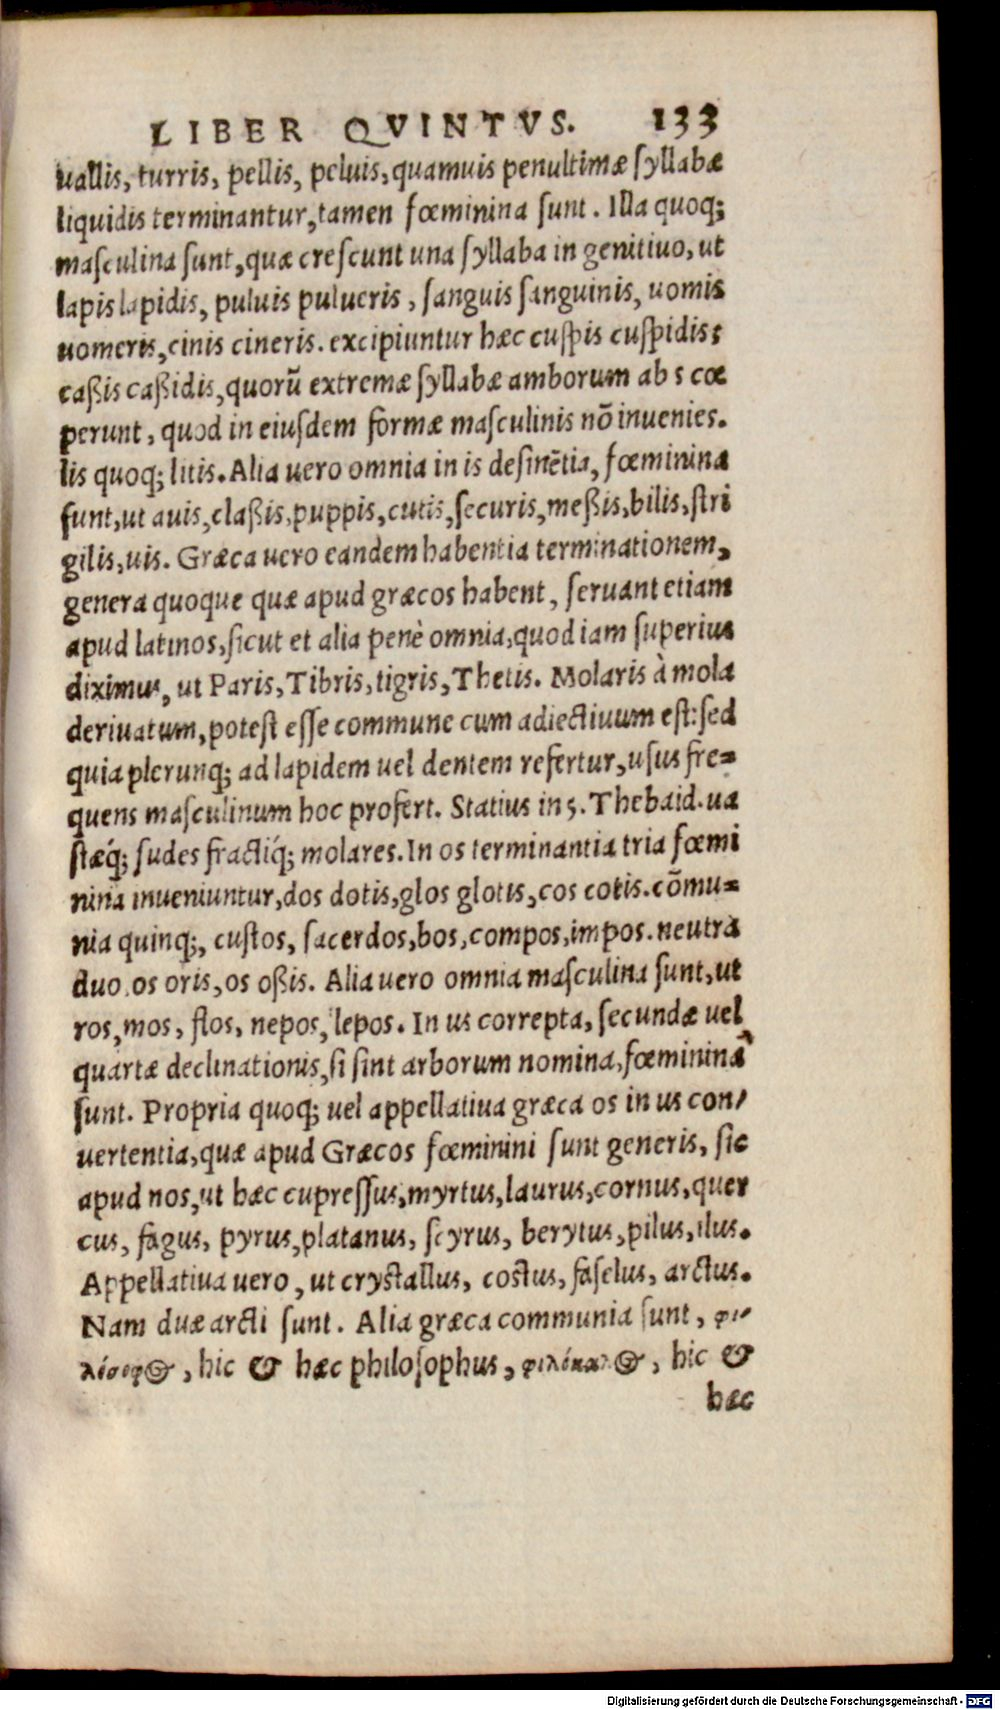 LIBER QVINTVS. 133
uallis, turris, pellis, peluis, quamuis penultimæ ſyllabæ
liquidis terminantur, tamen fœminina ſunt. Illa quoq;
maſculina ſunt, quæ creſcunt una ſyllaba in genitiuo, ut
lapis lapidis, puluis pulueris, ſanguis ſanguinis, uomis
uomeris, cinis cineris. excipiuntur hæc cuſpis cuſpidis;
caßis caßidis, quorũ extremæ ſyllabæ amborum ab s cœ
perunt, quod in eiuſdem formæ maſculinis nõ inuenies.
lis quoq; litis. Alia uero omnia in is deſinẽtia, fœminina
ſunt, ut auis, claßis, puppis, cutis, ſecuris, meßis, bilis, ſtri
gilis, uis. Græca uero eandem habentia terminationem,
genera quoque quæ apud græcos habent, ſeruant etiam
apud latinos, ſicut et alia penè omnia, quod iam ſuperius
diximus, ut Paris, Tibris, tigris, Thetis. Molaris à mola
deriuatum, poteſt eſſe commune cum adiectiuum eſt: ſed
quia plerunq; ad lapidem uel dentem refertur, uſus fre=
quens maſculinum hoc profert. Statius in 5. Thebaid. ua
ſtæq́; ſudes fractiq́; molares. In os terminantia tria fœmi
nina inueniuntur, dos dotis, glos glotis, cos cotis. cõmu=
nia quinq;, cuſtos, ſacerdos, bos, compos, impos. neutra
duo, os oris, os oßis. Alia uero omnia maſculina ſunt, ut
ros, mos, flos, nepos, lepos. In us correpta, ſecundæ uel
quartæ declinationis, ſi ſint arborum nomina, fœminina
ſunt. Propria quoq; uel appellatiua græca os in us con/
uertentia, quæ apud Græcos fœminini ſunt generis, ſic
apud nos, ut hæc cupreſſus, myrtus, laurus, cornus, quer
cus, fagus, pyrus, platanus, ſcyrus, berytus, pilus, ilus.
Appellatiua uero, ut cryſtallus, coſtus, faſelus, arctus.
Nam duæ arcti ſunt. Alia græca communia ſunt, φι/
λόσοφος, hic & hæc philoſophus, φιλόκαλος, hic &
hæc
Digitalisierung gefördert durch die Deutsche Forschungsgemeinschaft - DFG